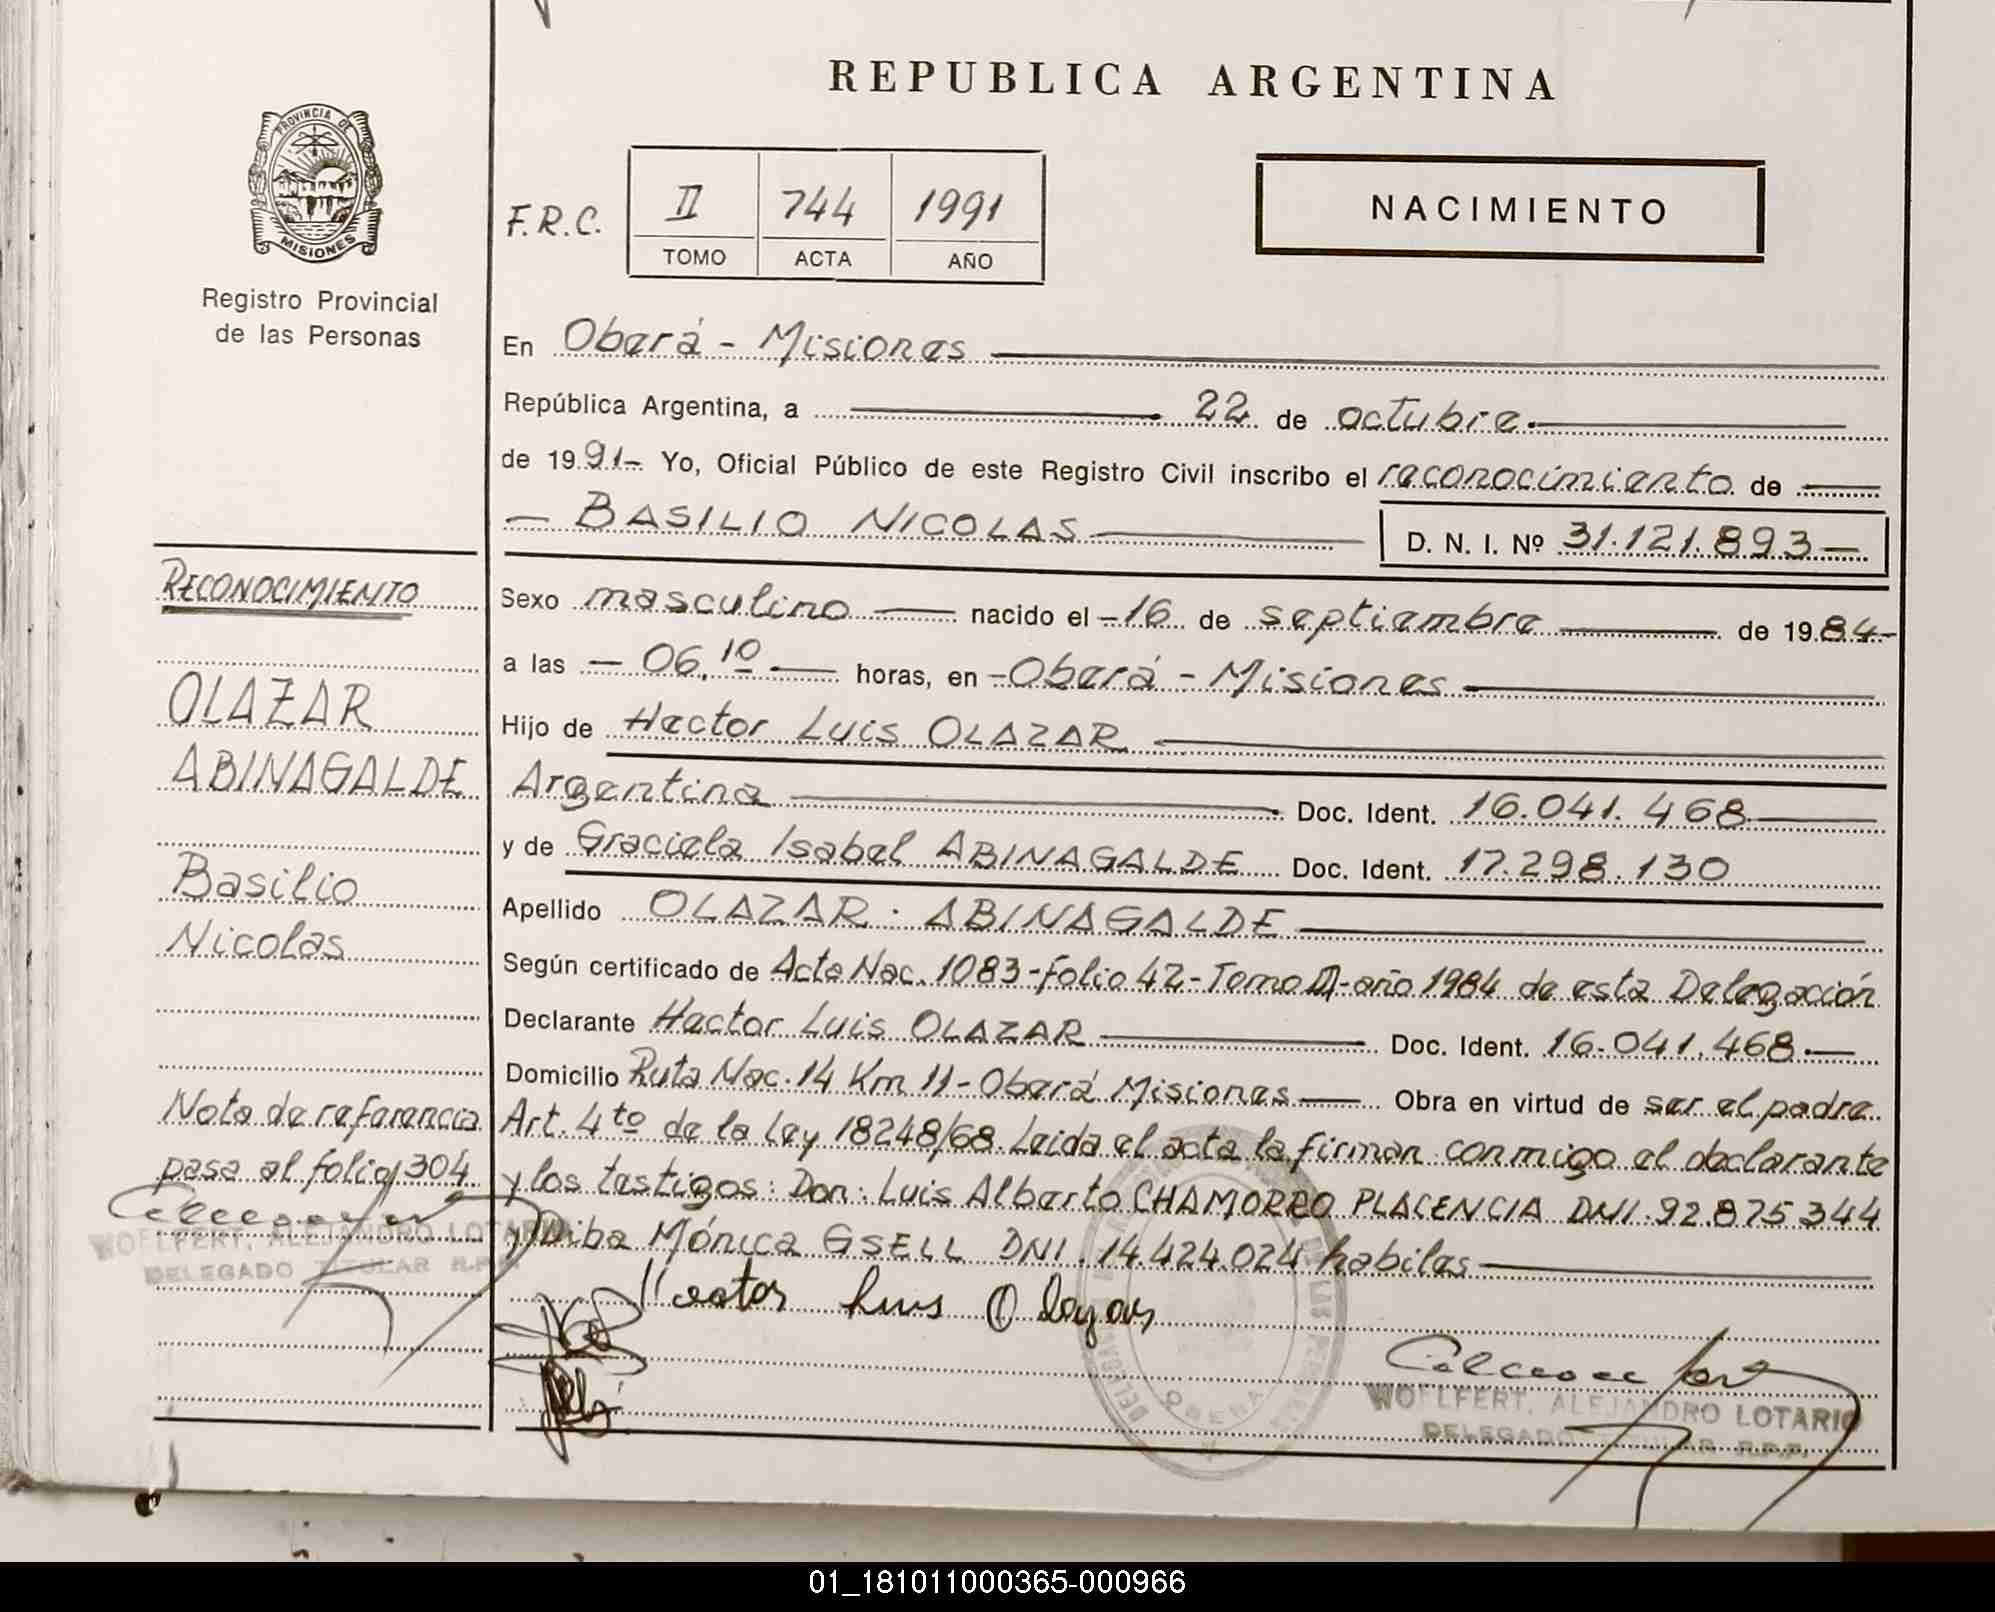 REPUBLICA ARGENTINA
PROVINCIA DE
MISIONES
Registro Provincial
de las Personas
F.R.C.
II 744 1991
TOMO ACTA AÑO
NACIMIENTO
En Oberá - Misiones
República Argentina, a 22 de octubre.
de 1991- Yo, Oficial Público de este Registro Civil inscribo el reconocimiento de
- BASILIO NICOLAS D. N. I. Nº 31.121.893-
Sexo masculino nacido el -16 de septiembre de 1984-
a las - 06,10 horas, en - Oberá - Misiones
Hijo de Hector Luis OLAZAR
Argentina Doc. Ident. 16.041.468
y de Graciela Isabel ABINAGALDE Doc. Ident. 17.298.130
Apellido OLAZAR : ABINAGALDE
Según certificado de Acta Nac. 1083-folio 42-Tomo III-año 1984 de esta Delegación
Declarante Hector Luis OLAZAR Doc. Ident. 16.041.468.-
Domicilio Ruta Nac. 14 Km 11 - Oberá Misiones Obra en virtud de ser el padre.
Art. 4to de la ley 18248/68. Leida el acta la firman conmigo el declarante
y los testigos: Don: Luis Alberto CHAMORRO PLACENCIA DNI. 92.875344
y Diba Mónica GSELL DNI. 14.424.024 habiles
Hector Luis Olazar
WOELFERT, ALEJANDRO LOTARIO
DELEGADO TITULAR R.P.P.
RECONOCIMIENTO
OLAZAR
ABINAGALDE
Basilio
Nicolas
Nota de referencia
pasa al folio 304
WOELFERT, ALEJANDRO LOTARIO
DELEGADO TITULAR R.P.P.
01_181011000365-000966